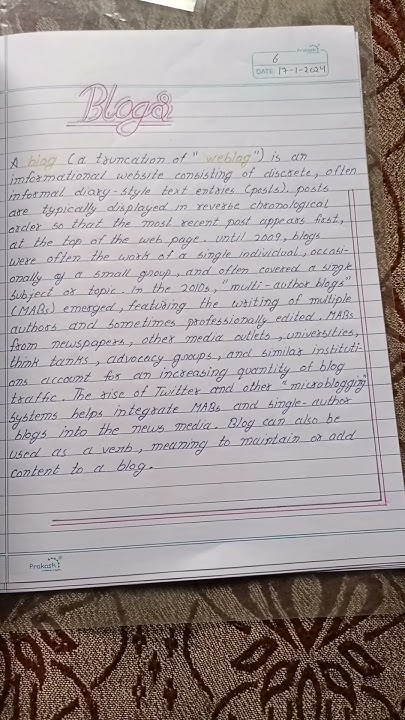 Prakash
6
DATE: 17-1-2024
Blogs
A blog (a truncation of "weblog") is an
imformational website consisting of discrete, often
informal diary-style text entries (posts). posts
are typically displayed in reverse chronological
order so that the most recent post appears first,
at the top of the web page. until 2009, blogs
were often the work of a single individual, occasi-
onally of a small group, and often covered a single
subject or topic. In the 2010s, "multi-author blogs"
(MABs) emerged, featuring the writing of multiple
authors and sometimes professionally edited. MABs
from newspapers, other media outlets, universities,
think tanks, advocacy groups, and similar instituti-
ons account for an increasing quantity of blog
traffic. The rise of Twitter and other "microblogging"
systems helps integrate MABs and single-author
blogs into the news media. Blog can also be
used as a verb, meaning to maintain or add
content to a blog.
Prakash